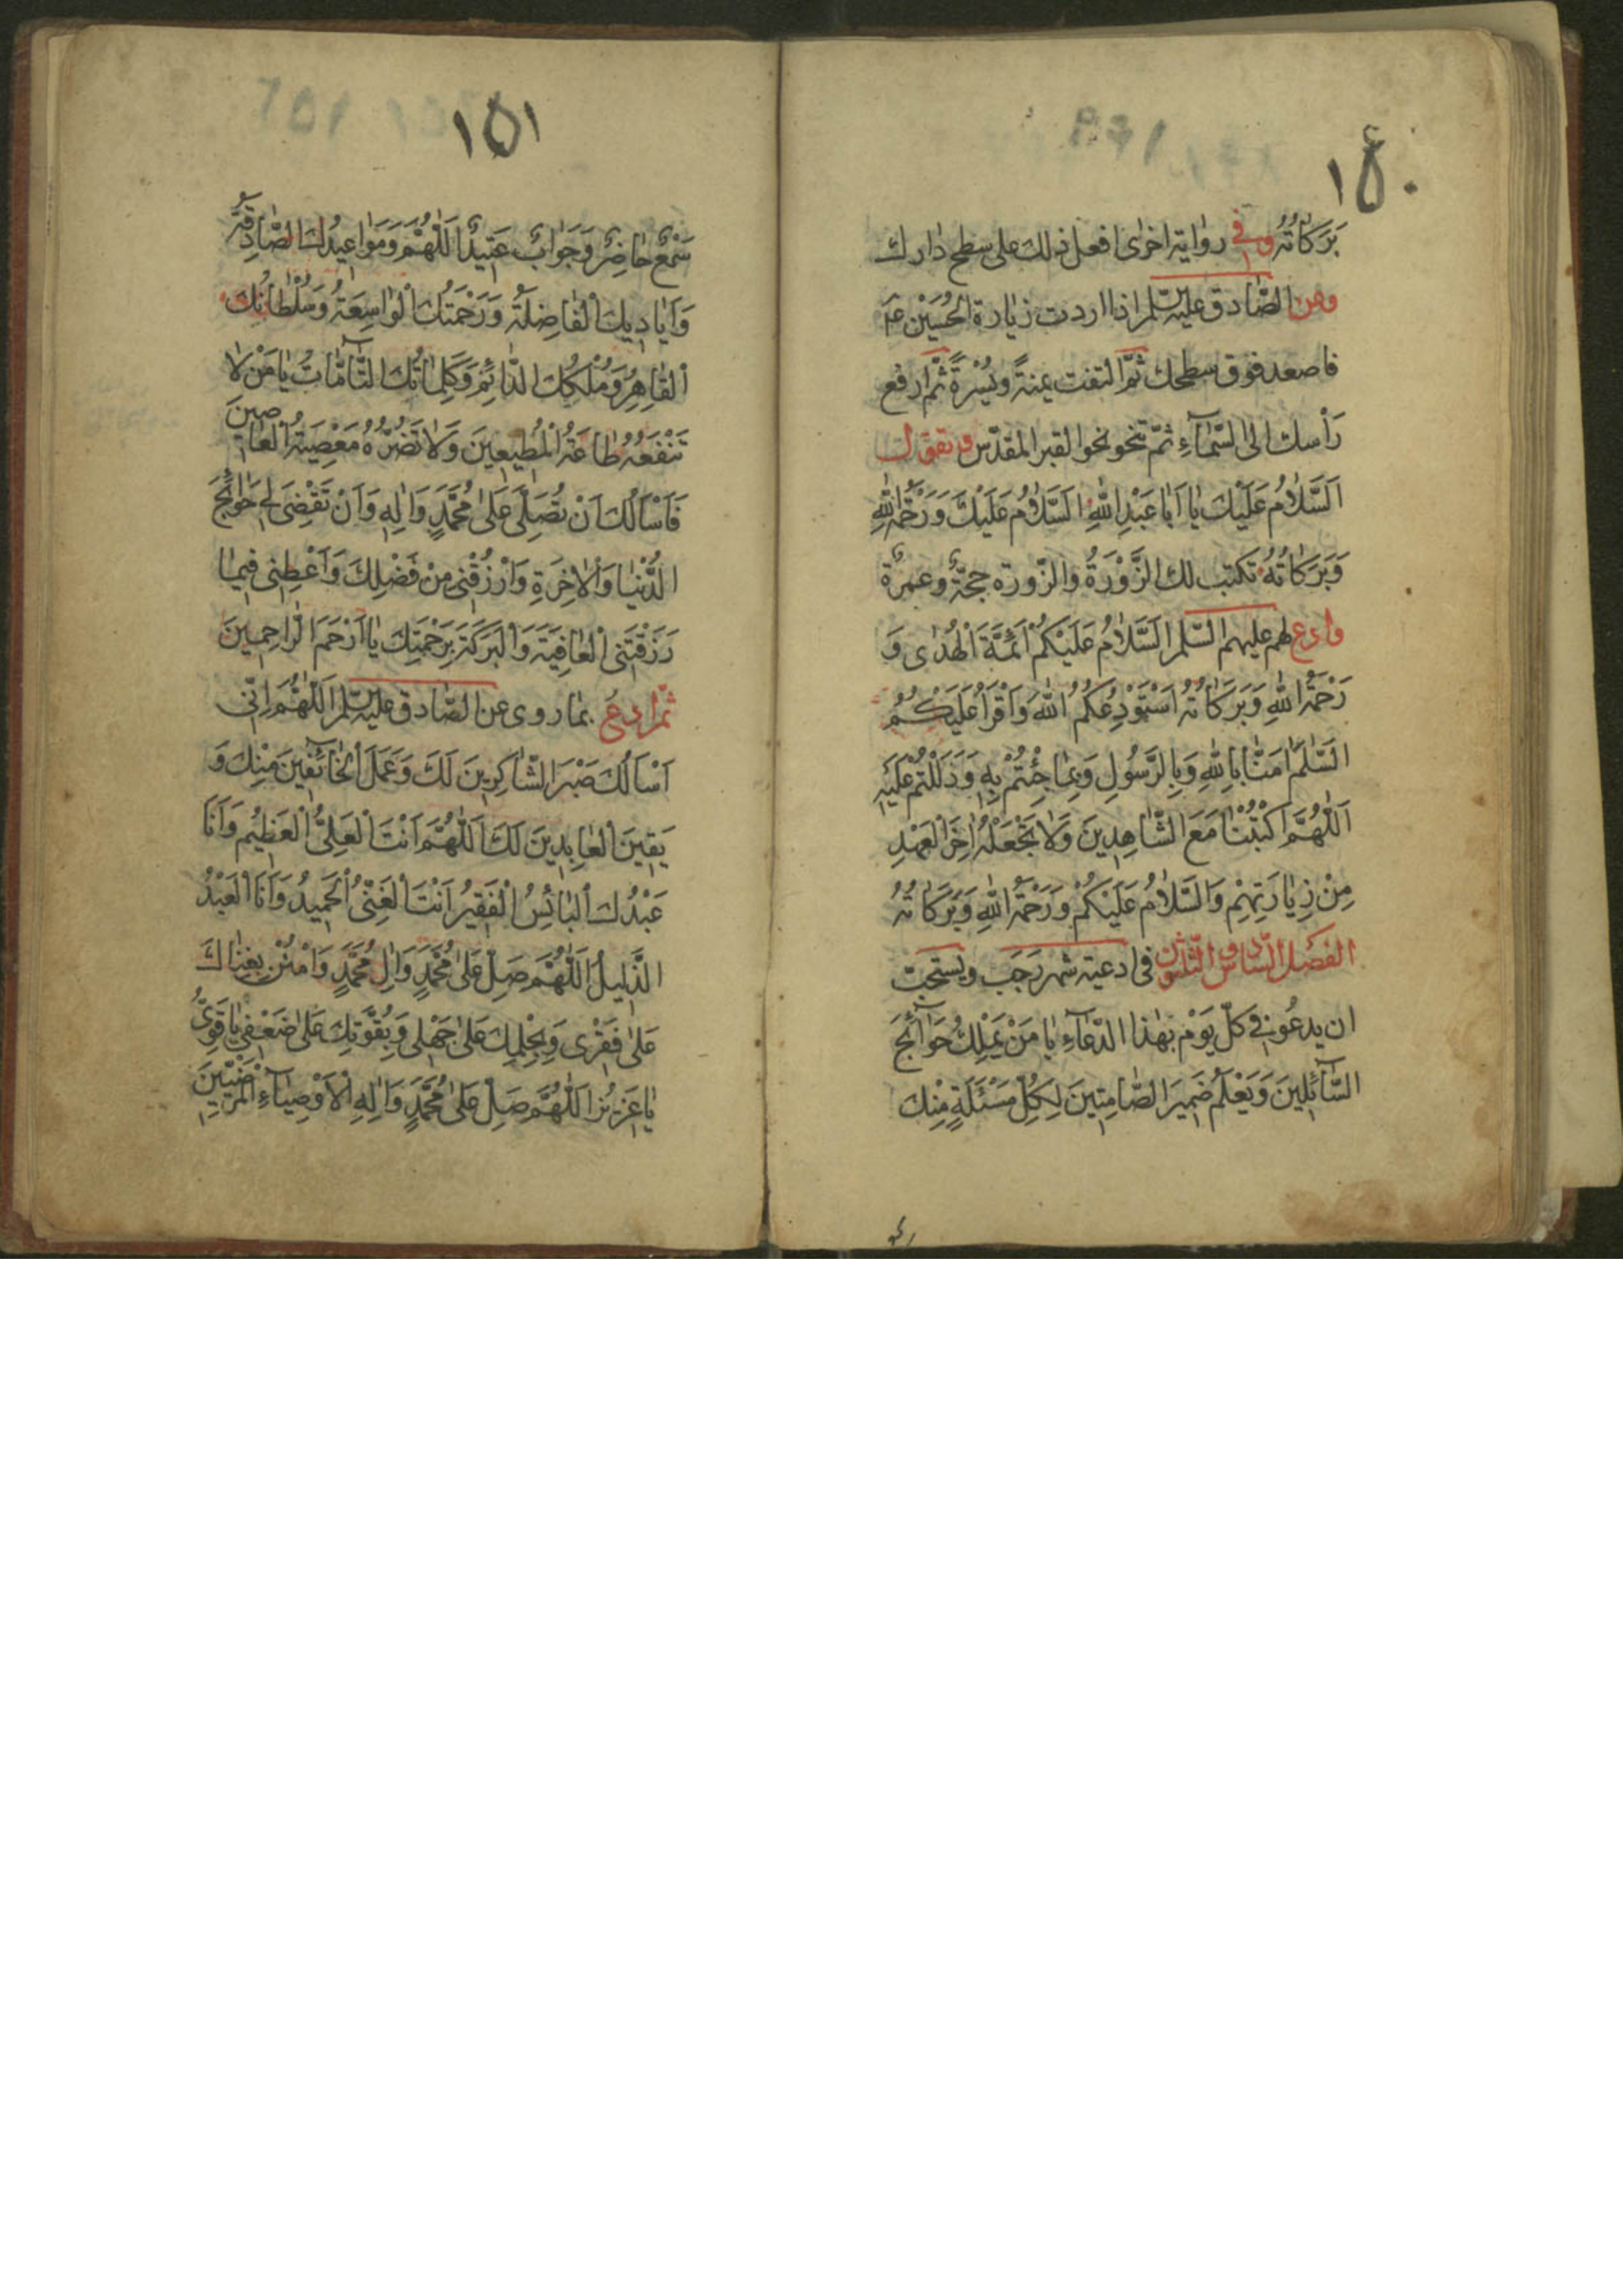 ١٥٠
بَرَكَاتُهُ وفى رواية اخرى افعل ذلك على سطح دارك
وعن الصّادق عليه السّلم اذا اردت زيارة الحُسَيْن ع
فاصعد فوق سطحك ثمّ التفت يمنةً ويُسْرةً ثمّ ارفع
رَأسك الى السّمآءِ ثمّ تنحو نحو القبر المقدّس وتقول
اَلسَّلامُ عَلَيْكَ يا اَبا عَبْدِ اللهِ اَلسَّلامُ عَلَيْكَ وَرَحْمَةُ اللهِ
وَبَرَكاتُهُ تكتب لك الزَّوْرَةُ والزّورة حجّةٌ وعمرةٌ
وادع لهم عليهم السّلم اَلسَّلامُ عَلَيْكُمْ اَئمَّةَ الْهُدى وَ
رَحْمَةُ اللهِ وَبَرَكاتُهُ اَسْتَوْدِعُكُمُ اللهَ وَاَقْرَأُ عَلَيْكُمُ
السَّلمَ امَنّا بِاللهِ وَبِالرَّسُولِ وَبِما جِئْتُمْ بِهِ وَدَلَلْتُمْ عَلَيْهِ
اَللّهُمَّ اكْتُبْنا مَعَ الشّاهِدينَ وَلا تَجْعَلْهُ اخِرَ الْعَهْدِ
مِنْ زِيارَتِهِمْ وَالسَّلامُ عَلَيْكُمْ وَرَحْمَةُ اللهِ وَبَرَكاتُهُ
الفصل السّادس الثّلثون فى ادعية شهر رَجَب ويستحبّ
ان يدعُو فى كلّ يَوْم بهذا الدّعآءِ يا مَنْ يَمْلِكُ حَوآئجَ
السّآئلينَ وَيَعْلَمُ ضَميرَ الصّامِتينَ لِكُلِّ مَسْئَلَةٍ مِنْكَ
١٥١
سَمْعٌ حاضِرٌ وَجَوابٌ عَتيدٌ اَللّهُمَّ وَمَواعيدُكَ الصّادِقَةُ
وَاَياديكَ الْفاضِلَةُ وَرَحْمَتُكَ الْواسِعَةُ وَسُلْطانُكَ
الْقاهِرُ وَمُلْكُكَ الدّائِمُ وَكَلِماتُكَ التّآمّاتُ يا مَنْ لا
تَنْفَعُهُ طاعَةُ الْمُطيعينَ وَلا تَضُرُّهُ مَعْصِيَةُ الْعاصينَ
فَاَسْاَلُكَ اَنْ تُصَلِّىَ عَلى مُحَمَّدٍ وَالِهِ وَاَنْ تَقْضِىَ لى حَوآئِجَ
الدُّنْيا وَالاخِرَةِ وَارْزُقْنى مِنْ فَضْلِكَ وَاَعْطِنى فيما
رَزَقْتَنى الْعافِيَةَ وَالْبَرَكَةَ بِرَحْمَتِكَ يا اَرْحَمَ الرّاحِمينَ
ثمّ ادع بما روى عن الصّادق عليه السّلم اَللّهُمَّ اِنّى
اَسْاَلُكَ صَبْرَ الشّاكِرينَ لَكَ وَعَمَلَ الْخآئِفينَ مِنْكَ وَ
يَقينَ الْعابِدينَ لَكَ اَللّهُمَّ اَنْتَ الْعَلِىُّ الْعَظيمُ وَاَنَا
عَبْدُكَ الْبائِسُ الْفَقيرُ اَنْتَ الْغَنِىُّ الْحَميدُ وَاَنَا الْعَبْدُ
الذَّليلُ اَللّهُمَّ صَلِّ عَلى مُحَمَّدٍ وَالِ مُحَمَّدٍ وَامْنُنْ بِغِناكَ
عَلى فَقْرى وَبِحِلْمِكَ عَلى جَهْلى وَبِقُوَّتِكَ عَلى ضَعْفى يا قَوِىُّ
يا عَزيزُ اَللّهُمَّ صَلِّ عَلى مُحَمَّدٍ وَالِهِ الْاَوْصِيآءِ الْمَرْضِيّينَ